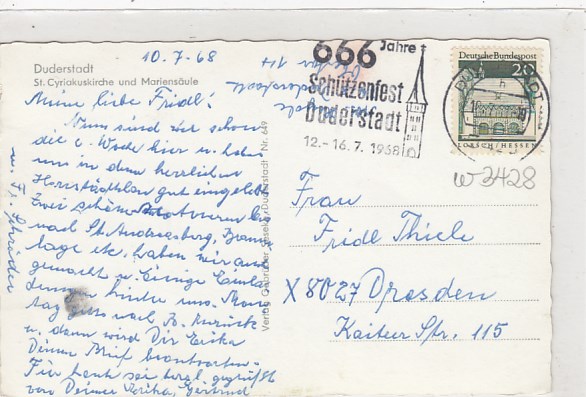 10.7.68
Duderstadt
St. Cyriakuskirche und Mariensäule
666 Jahre
Schützenfest
Duderstadt
12.-16.7.1968
Deutsche Bundespost
20
LORSCH/HESSEN
w 3428
Meine liebe Fridl!
Nun sind wir schon
die 2. Woche hier u. haben
uns in dem herrlichen
gut eingelebt
Zwei schöne
nach St. Andreasberg,
lage etc. haben wir
gemacht u. Einige
hinter uns.
tag nach B. zurück
u. dann wird Dir Erika
Deinen Brief beantworten.
Für heute sei herzl. gegrüßt
von Deiner Erika, Gertrud
u. Fr. Schröder
Verlag Nr. 649
Frau
Fridl Thiele
X 8027 Dresden
Kaitzer Str. 115